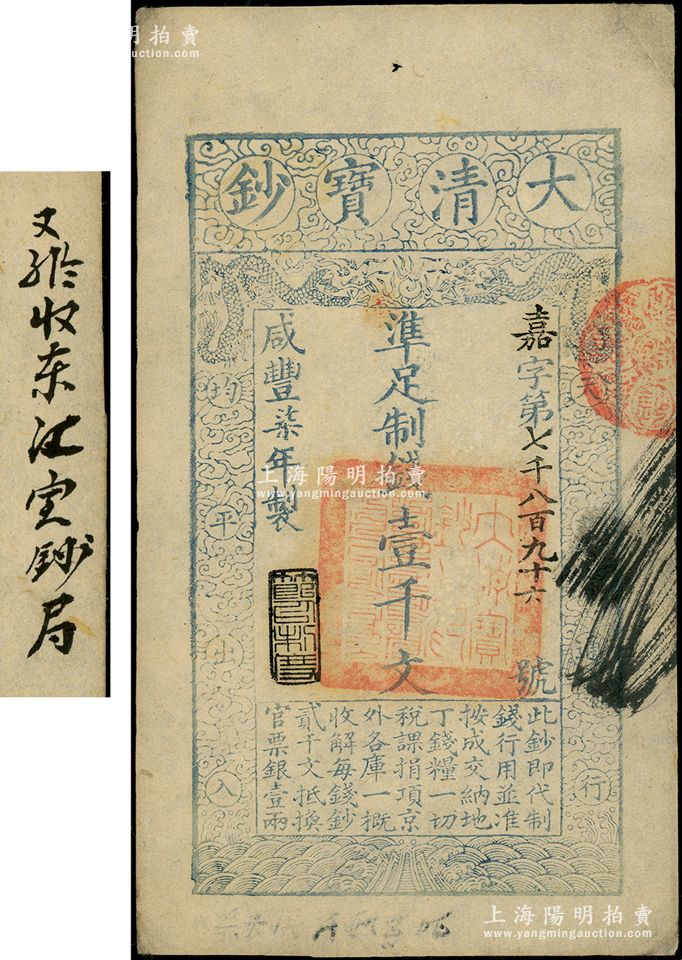 大清寶鈔
嘉字第七千八百九十六號
準足制錢壹千文
咸豐柒年製
均平出入
行
此鈔即代制
錢行用並准
按成交納地
丁錢糧一切
稅課捐項京
外各庫一概
收解每錢鈔
貳千文抵換
官票銀壹兩
收东江宝鈔局
上海陽明拍賣
www.yangmingauction.com
上海陽明拍賣
www.yangmingauction.com
明拍賣
uction.com